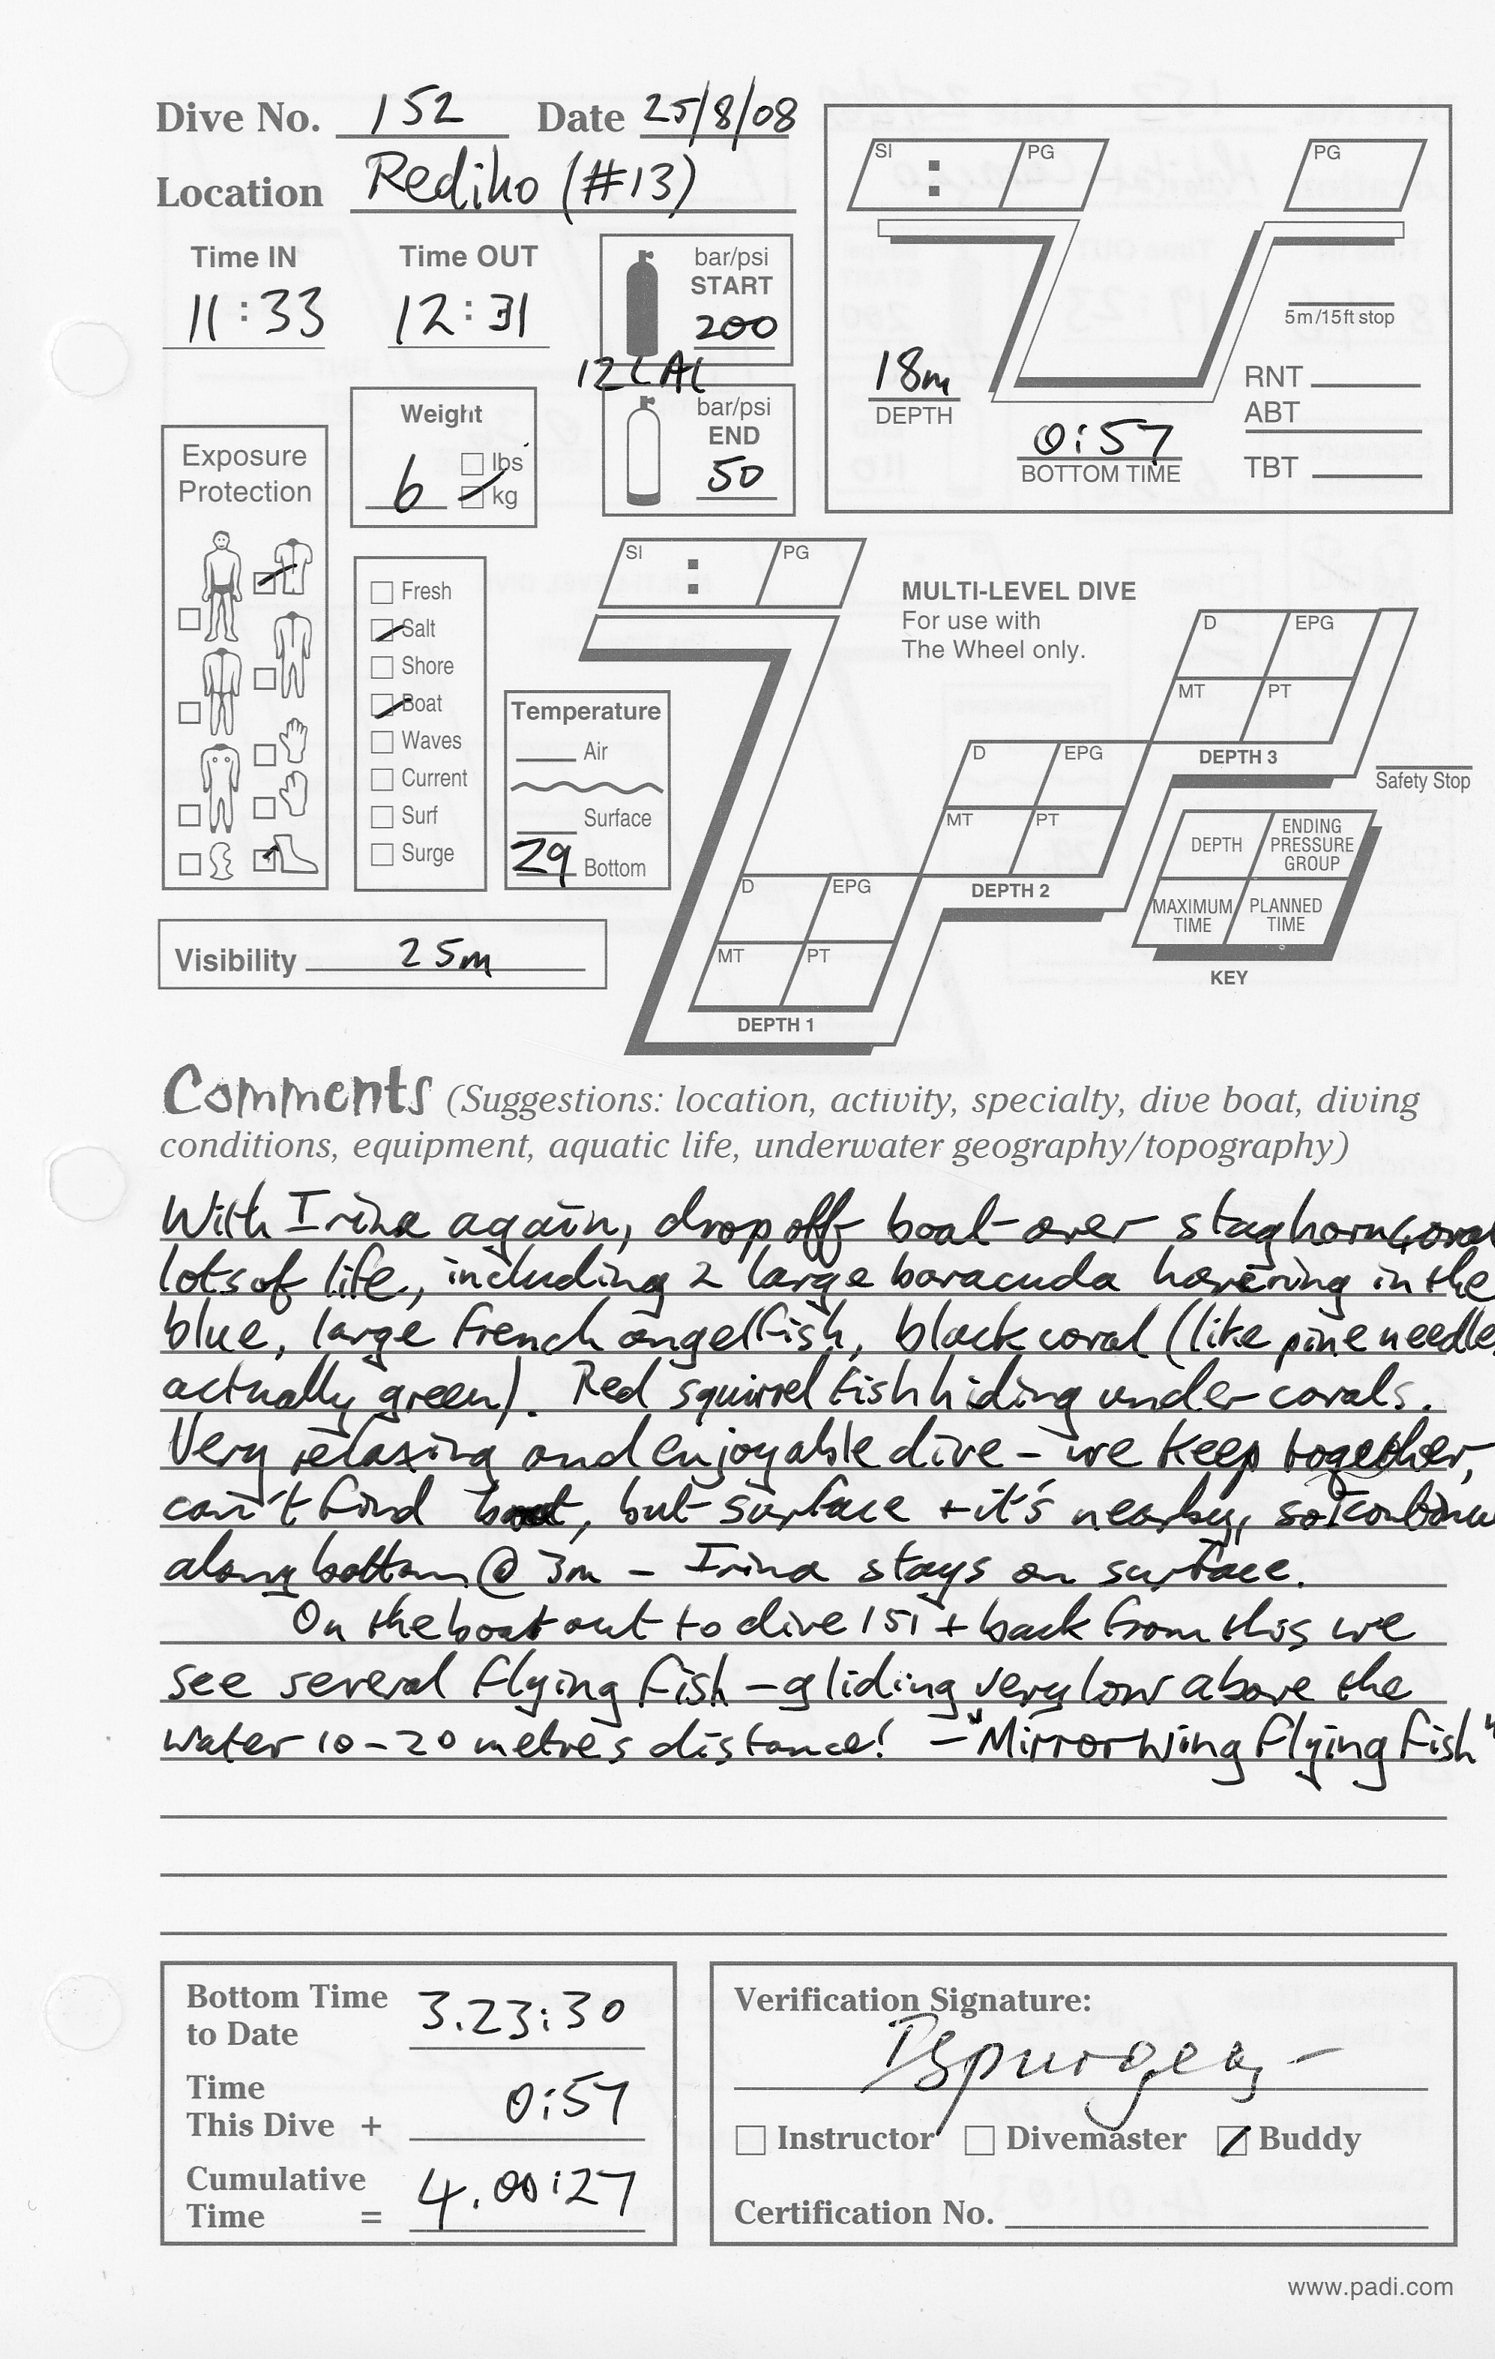 Dive No. 152 Date 25/8/08
Location Rediho (#13)
Time IN Time OUT
11:33 12:31
bar/psi
START
200
12L AL
bar/psi
END
50
Weight
6 lbs
kg
Exposure
Protection
Fresh
Salt
Shore
Boat
Waves
Current
Surf
Surge
Temperature
Air
Surface
29 Bottom
Visibility 25m
SI : PG
PG
5m/15ft stop
18m
DEPTH
0:57
BOTTOM TIME
RNT
ABT
TBT
SI : PG
MULTI-LEVEL DIVE
For use with
The Wheel only.
D EPG
MT PT
DEPTH 3
Safety Stop
D EPG
MT PT
DEPTH 2
D EPG
MT PT
DEPTH 1
DEPTH ENDING PRESSURE GROUP
MAXIMUM TIME PLANNED TIME
KEY
Comments (Suggestions: location, activity, specialty, dive boat, diving
conditions, equipment, aquatic life, underwater geography/topography)
With Irina again, drop off boat over staghorn coral
lots of life, including 2 large baracuda hovering in the
blue, large french angelfish, black coral (like pine needles
actually green). Red squirrel fish hiding under corals.
Very relaxing and enjoyable dive - we keep together,
can't find boat, but surface + it's nearby, so I continu
along bottom @ 3m - Irina stays on surface.
On the boat out to dive 151 + back from this we
see several flying fish - gliding very low above the
water 10-20 metres distance! - "Mirrorwing flying fish"
Bottom Time
to Date 3.23:30
Time
This Dive + 0:57
Cumulative
Time = 4.00:27
Verification Signature:
Instructor Divemaster Buddy
Certification No.
www.padi.com